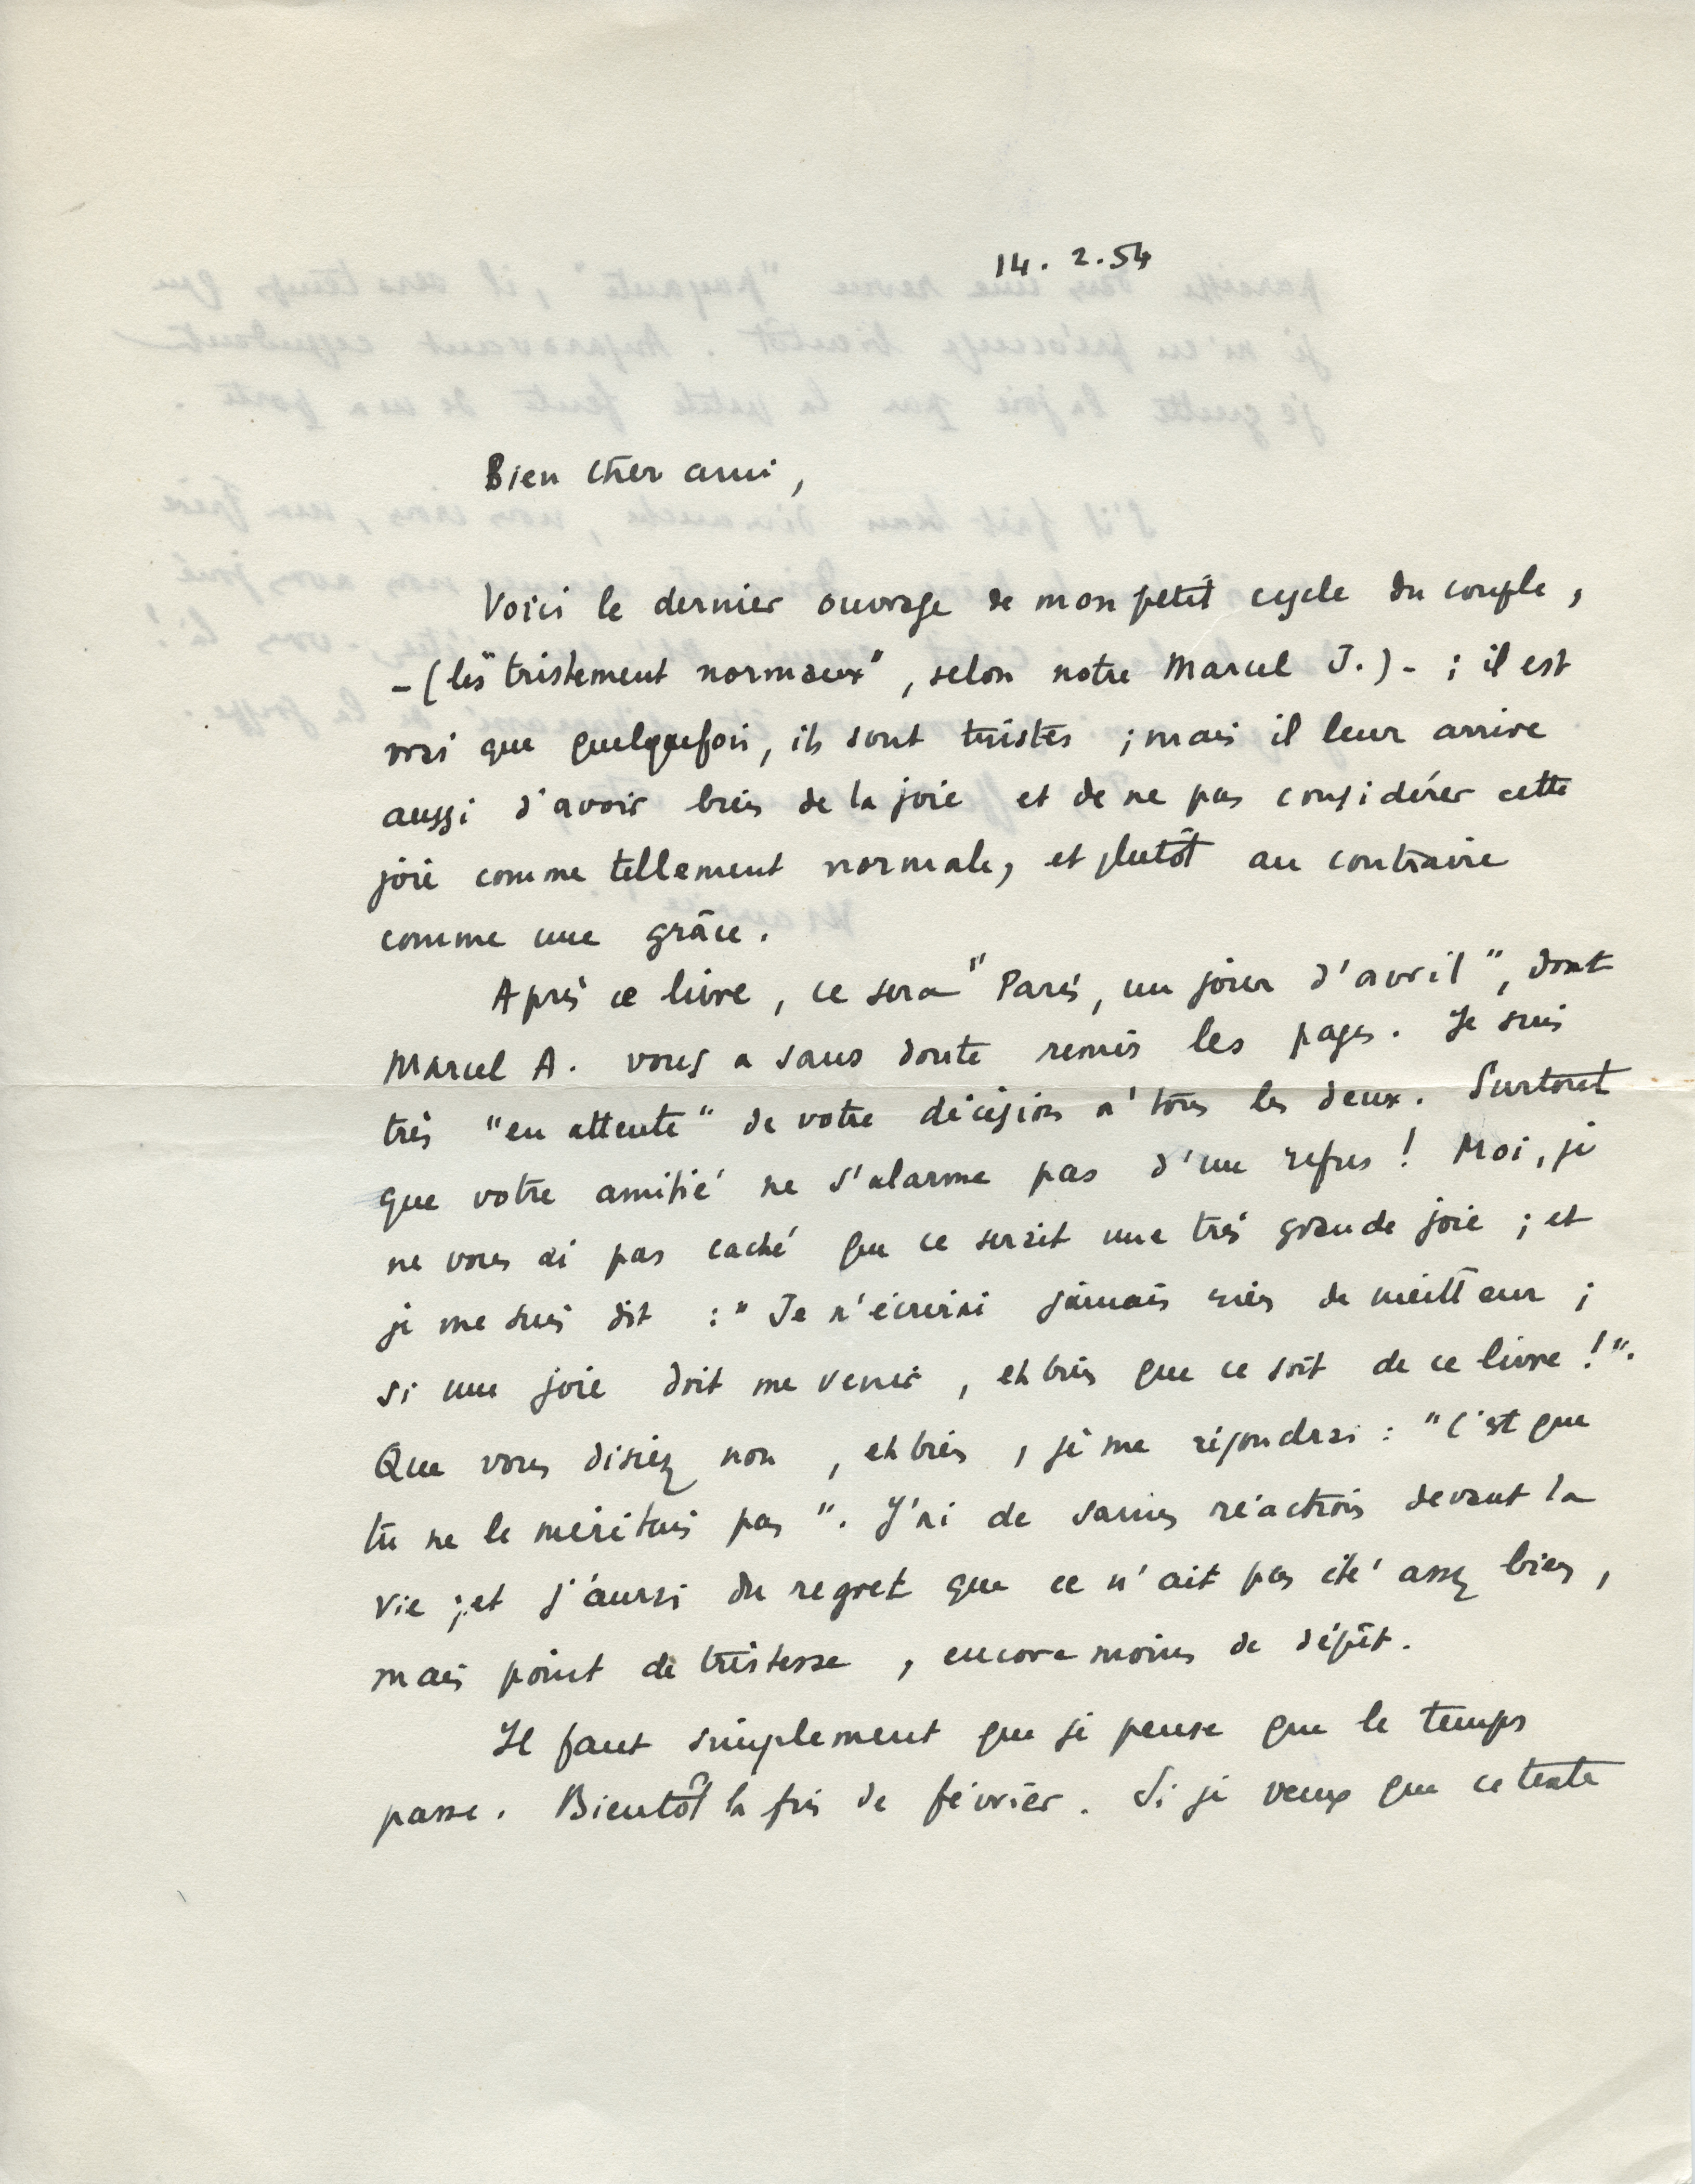 14. 2. 54
Bien cher ami,
Voici le dernier ouvrage de mon petit cycle du couple,
- (les "tristement normaux", selon notre Marcel J.) - ; il est
vrai que quelquefois, ils sont tristes ; mais il leur arrive
aussi d'avoir bien de la joie et de ne pas considérer cette
joie comme tellement normale, et plutôt au contraire
comme une grâce.
Après ce livre, ce sera "Paris, un jour d'avril", dont
Marcel A. vous a sans doute remis les pages. Je suis
très "en attente" de votre décision à tous les deux. Surtout
que votre amitié ne s'alarme pas d'un refus ! Moi, je
ne vous ai pas caché que ce serait une très grande joie ; et
je me suis dit : "Je n'écrirai jamais rien de meilleur ;
si une joie doit me venir, eh bien que ce soit de ce livre !".
Que vous disiez non, eh bien, je me répondrai : "C'est que
tu ne le méritais pas". J'ai de saines réactions devant la
vie ; et j'aurai du regret que ce n'ait pas été assez bien,
mais point de tristesse, encore moins de dépit.
Il faut simplement que je pense que le temps
passe. Bientôt la fin de février. Si je veux que ce texte